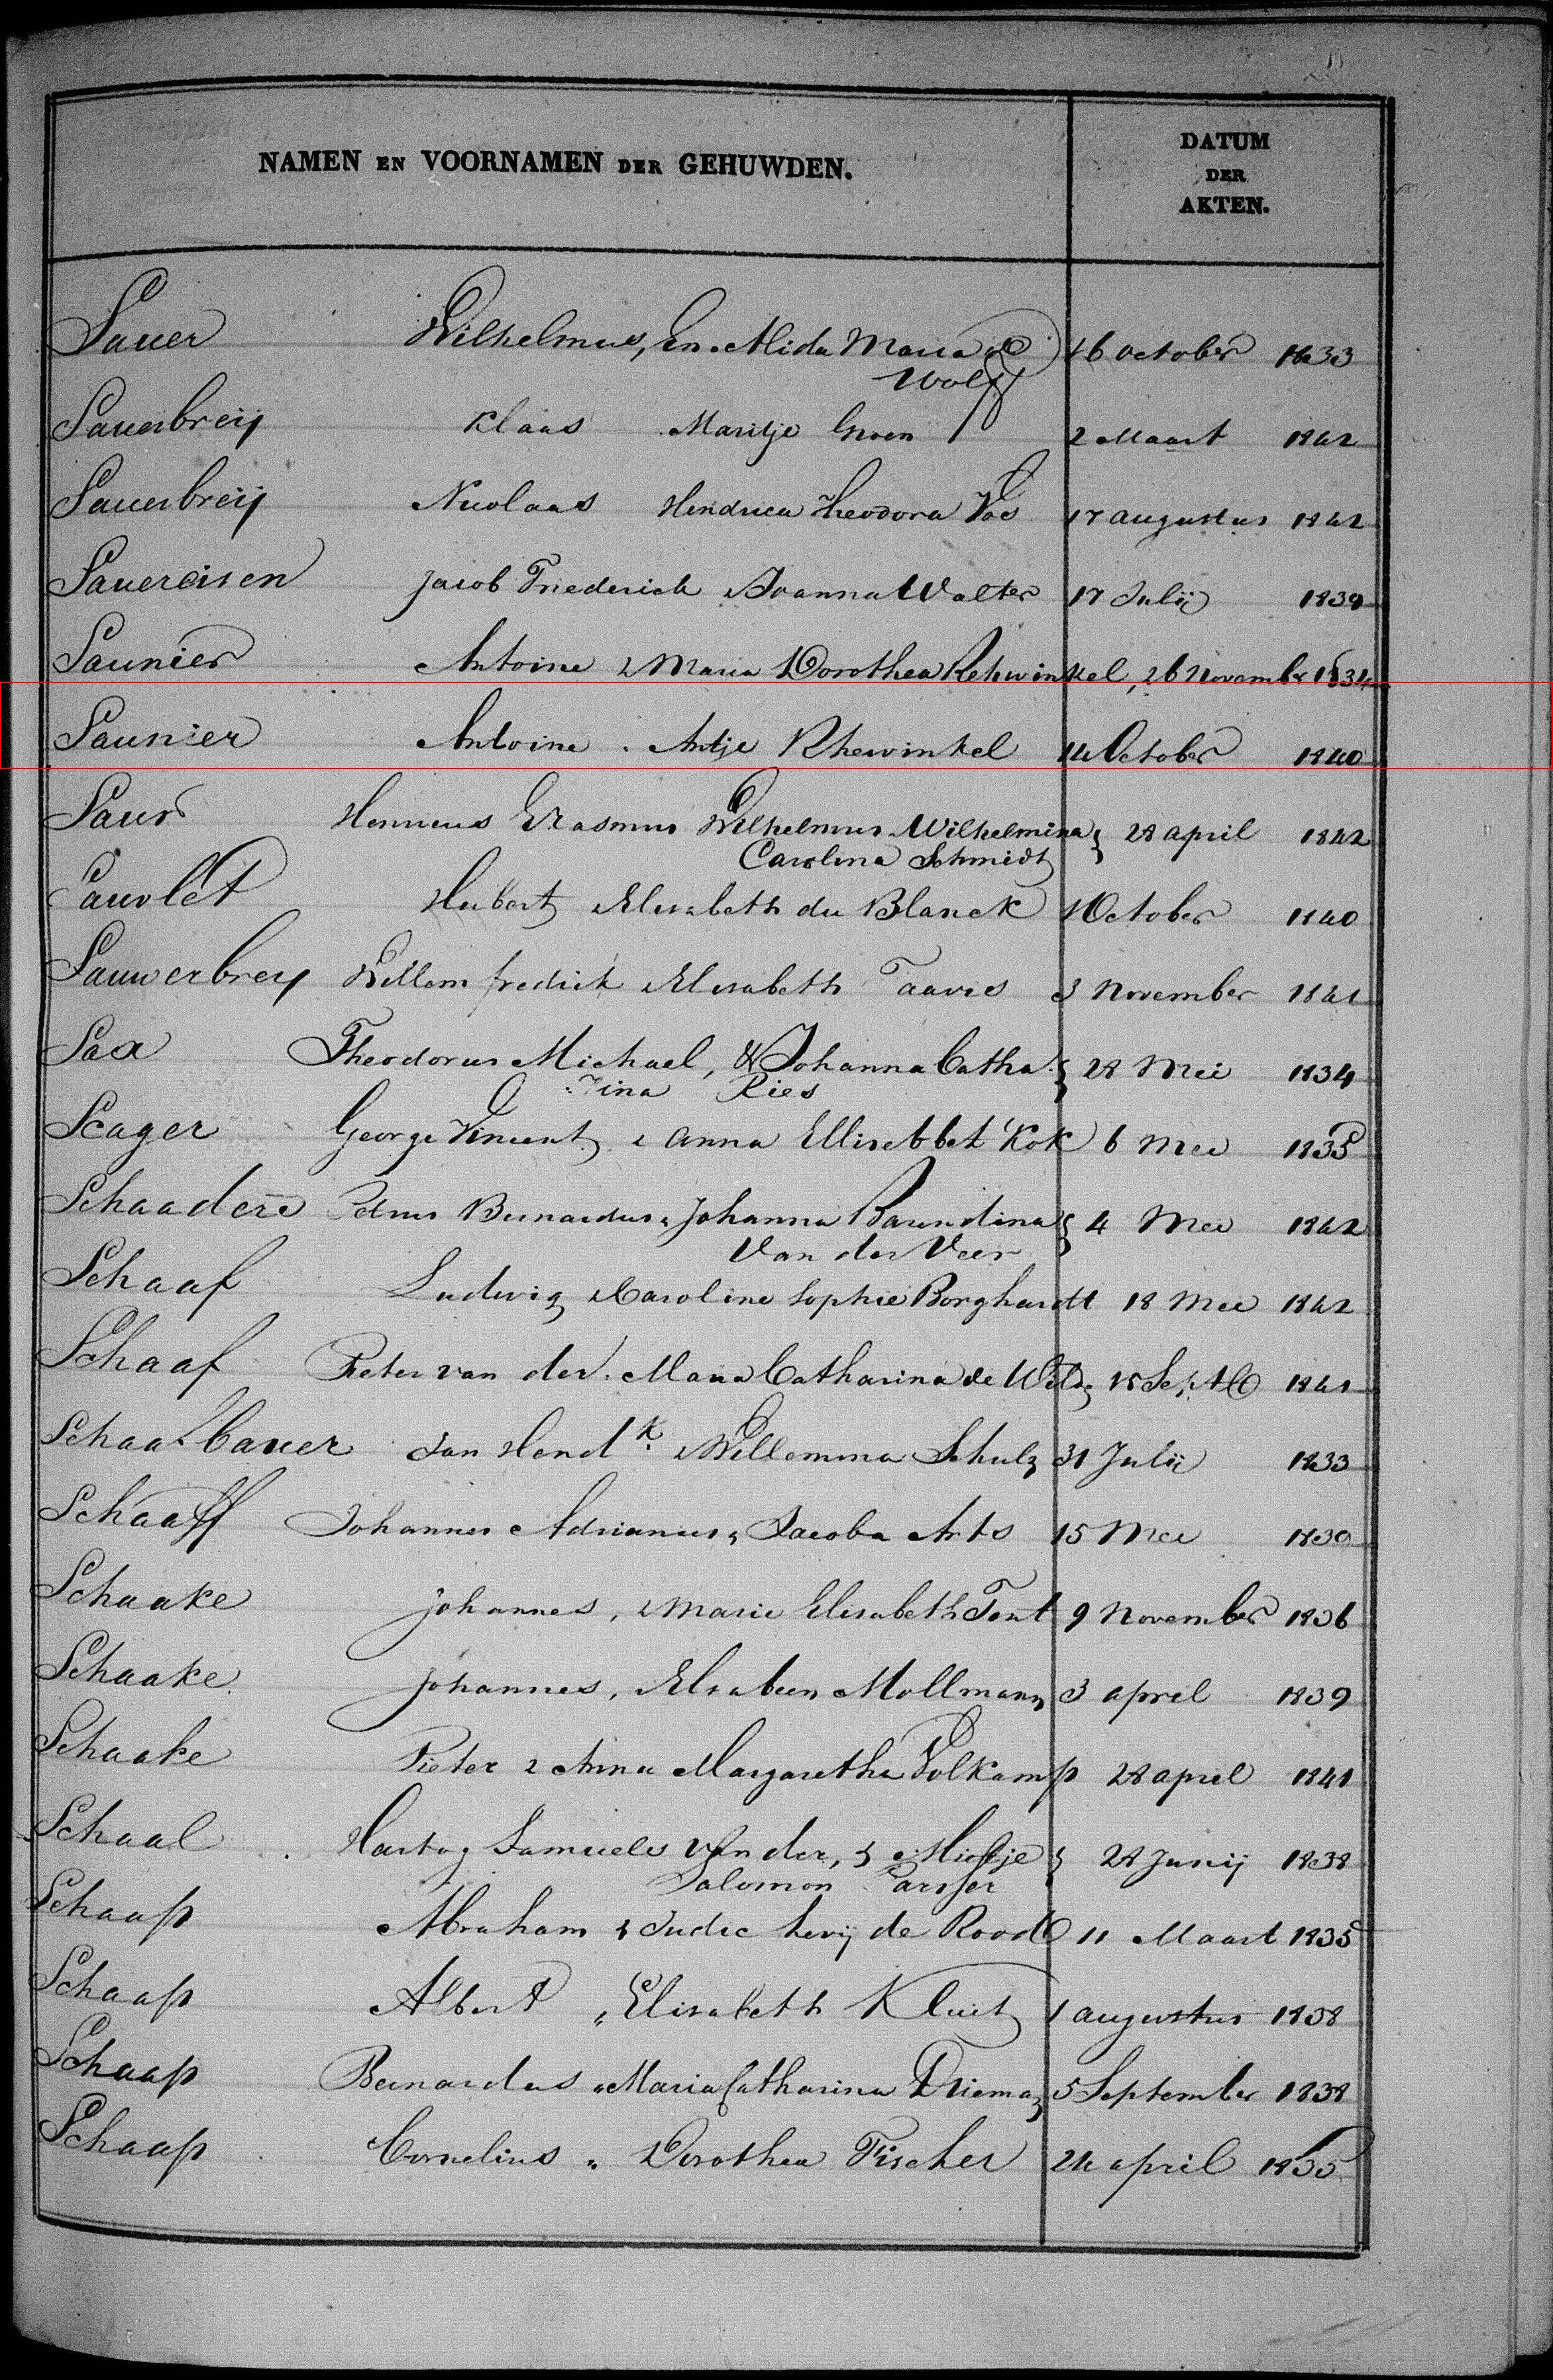 NAMEN EN VOORNAMEN DER GEHUWDEN.
DATUM
DER
AKTEN.
Sauer Wilhelmus, En Alida Maria de 16 october 1833
Wolff
Sauerbreij Klaas Maritje Groen 2 Maart 1842
Sauerbreij Nicolaas Hendrica Theodora Vos 17 augustus 1842
Sauereisen Jacob Friederich & Joanna Walter 17 Julij 1839
Saunier Antoine & Maria Dorothea Rehwinkel, 26 Novembr 1834
Saunier Antoine . Antje Rhewinkel 14 October 1840
Saur Henricus Erasmus Wilhelmus Wilhelmina 28 april 1842
Carolina Schmidt
Sauvlet Hubert Elisabeth du Blanck 1 October 1840
Sauwerbrey Willem fredrik Elisabeth Taavis 3 November 1841
Sax Theodorus Michael, & Johanna Catha 28 Mei 1834
rina Ries
Scager George Vincent & Anna Ellisebbet Kok 6 Mei 1835
Schaadee Petrus Bernardus & Johanna Barendina 4 Mei 1842
Van der Veer
Schaaf Ludwig Caroline Sophie Borghardt 18 Mei 1842
Schaaf Pieter van der . Maria Catharina de Wild 15 Sept 1841
Schaafbauer Jan Hendk Willemina Schulz 31 Julij 1833
Schaaff Johannes Adrianus & Jacoba Arts 15 Mei 1839
Schaake Johannes, & Marie Elisabeth Tent 9 November 1836
Schaake Johannes, Elsabeen Mollmann 3 april 1839
Schaake Pieter & Anna Margaretha Volkamp 28 april 1841
Schaal Hartog Samuels van der, & Mietje 28 Junij 1838
Salomon Parsser
Schaap Abraham & Judic Levij de Rood 11 Maart 1835
Schaap Albert „ Elisabeth Kluit 1 augustus 1838
Schaap Bernardus „ Maria Catharina Driema 5 September 1838
Schaap Cornelius „ Dorothea Fischer 24 april 1835